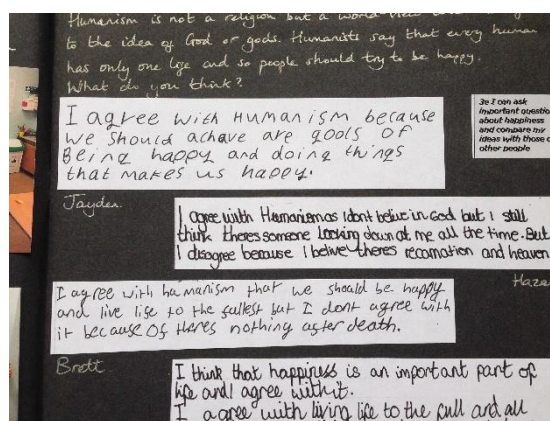 Humanism is not a religion but a world view
to the idea of God or gods. Humanists say that every human
has only one life and so people should try to be happy.
What do you think?
I agree with Humanism because
we should achave are gools of
Being happy and doing things
that makes us happy.
3e I can ask
important questio
about happiness
and compare my
ideas with those o
other people
Jayden.
I agree with Humanismas I dont belive in God but I still
think theres someone looking down at me all the time. But
I disagree because I belive theres recarnation and heaven
Haza
I agree with humanism that we should be happy
and live life to the fullest but I dont agree with
it because of theres nothing after death.
Brett
I think that happiness is an important part of
life and I agree with it.
I agree with living life to the full and all